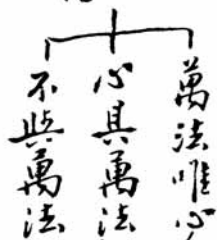 萬法唯心
心具萬法
不與萬法